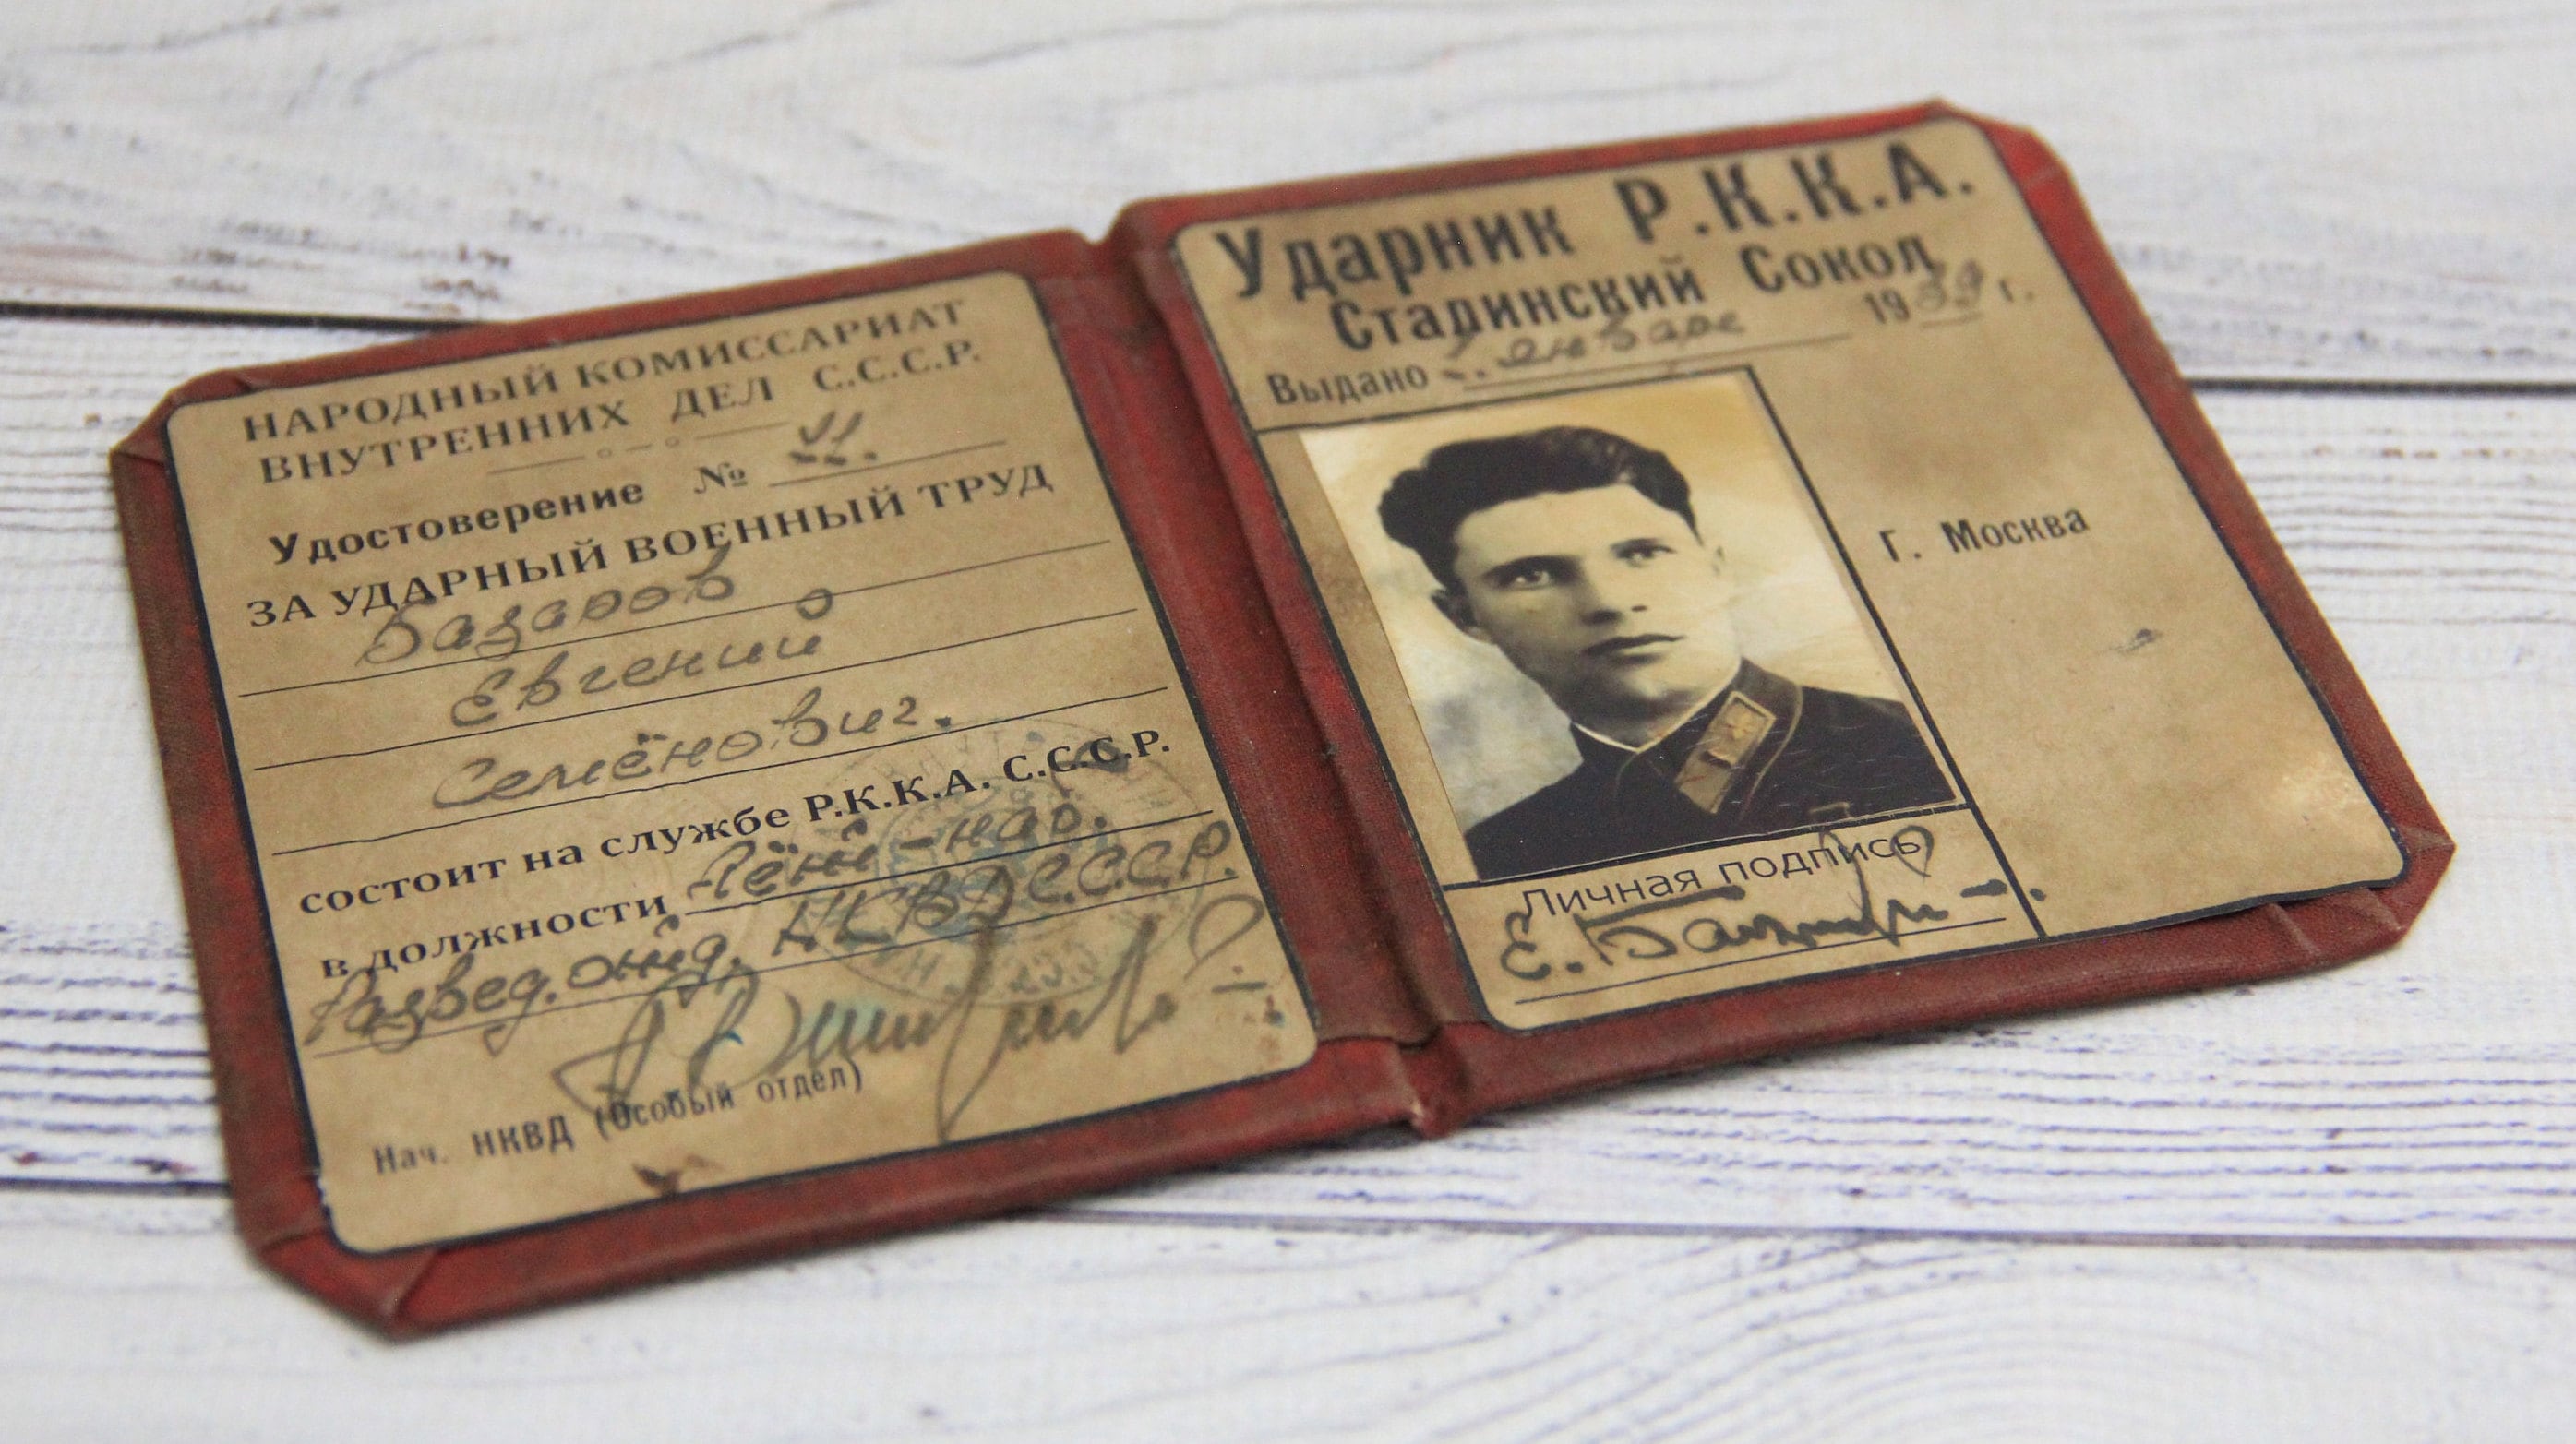 НАРОДНЫЙ КОМИССАРИАТ
ВНУТРЕННИХ ДЕЛ С.С.С.Р.
Удостоверение №
ЗА УДАРНЫЙ ВОЕННЫЙ ТРУД
Базаров
Евгений
Семёнович.
состоит на службе Р.К.К.А. С.С.С.Р.
в должности
Развед. НКВД С.С.С.Р.
Нач. НКВД (Особый отдел)
Ударник Р.К.К.А.
Сталинский Сокол
Выдано января 1939 г.
Г. Москва
Личная подпись
Е.